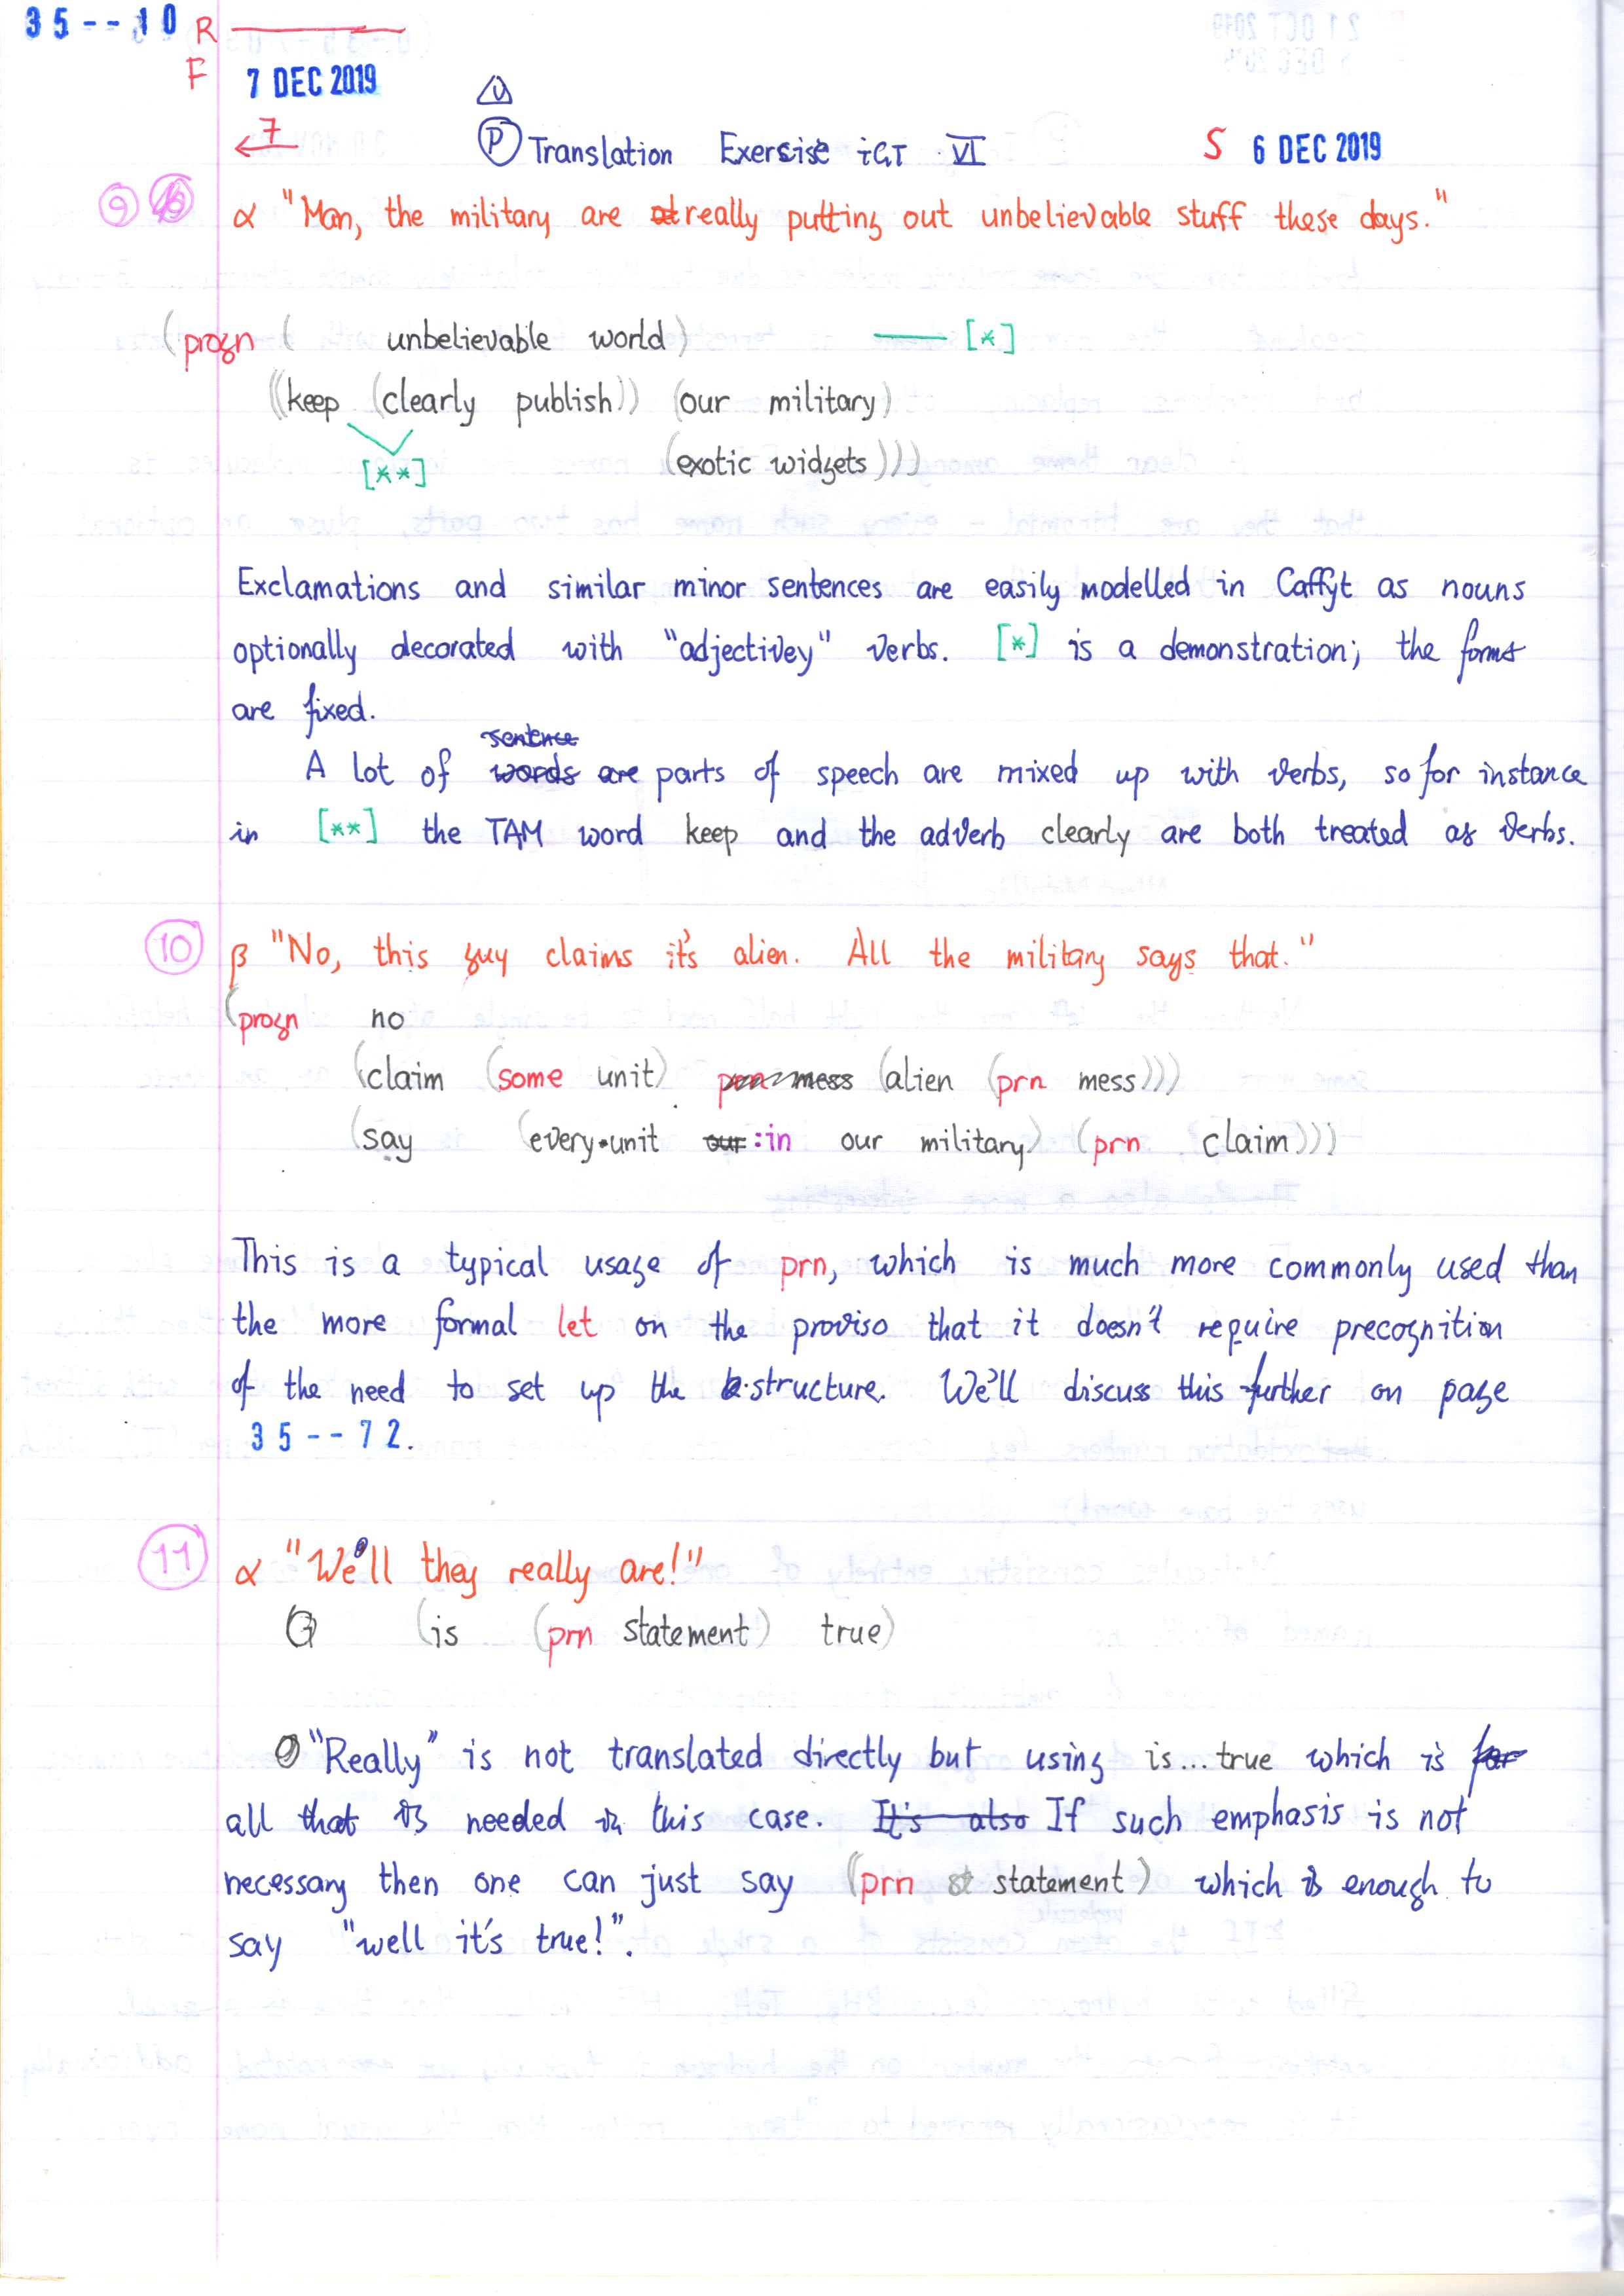 35--10 R
F 7 DEC 2019
7
P Translation Exersise iGT VI S 6 DEC 2019
9 α "Man, the military are really putting out unbelievable stuff these days."
(progn ( unbelievable world) [*]
((keep (clearly publish)) (our military)
[**] (exotic widgets)))
Exclamations and similar minor sentences are easily modelled in Caffyt as nouns
optionally decorated with "adjectivey" verbs. [*] is a demonstration; the forms
are fixed.
sentence
A lot of words are parts of speech are mixed up with verbs, so for instance
in [**] the TAM word keep and the adverb clearly are both treated as verbs.
10 β "No, this guy claims it's alien. All the military says that."
(progn no
(claim (some unit) prn mess (alien (prn mess)))
(say (every•unit our :in our military) (prn claim)))
This is a typical usage of prn, which is much more commonly used than
the more formal let on the proviso that it doesn't require precognition
of the need to set up the structure. We'll discuss this further on page
35--72.
11 α "We'll they really are!"
(is (prn statement) true)
"Really" is not translated directly but using is...true which is for
all that is needed in this case. It's also If such emphasis is not
necessary then one can just say (prn st statement) which is enough to
say "well it's true!".